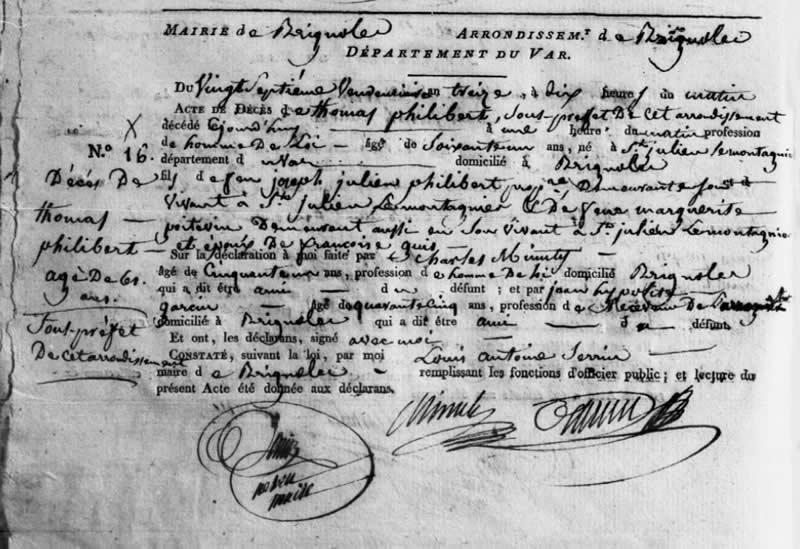 MAIRIE de Brignoles ARRONDISSEM.t de Brignoles
DÉPARTEMENT DU VAR.
Du Vingt Septième Vendemiaire an treize, à dix heures du matin
ACTE DE DÉCÈS de thomas philibert, Sous-préfet De Cet arrondissement
décédé Cejourd'huy à une heure du matin profession
de homme De Loi âgé de Soixante un ans, né à St. julien Lemontagnier
département d u Var domicilié à Brignoles
fils de feu joseph julien philibert, Demeurant de Son
Vivant à St. julien Lemontagnier & De feue marguerite
poitevin Demeurant aussi en Son Vivant à St. julien Lemontagnier
et époux De francoise quis
Sur la déclaration à moi faite par Charles Minuty
âgé de Cinquante un ans, profession d e homme De Loi domicilié Brignoles
qui a dit être ami du défunt; et par jean hypolite
garcin âgé de quarante Cinq ans, profession de Receveur De
domicilié à Brignoles qui a dit être ami du défunt
Et ont, les déclarans, signé avec moi
CONSTATÉ, suivant la loi, par moi Louis Antoine
maire d e Brignoles remplissant les fonctions d'officier public; et lecture du
présent Acte été donnée aux déclarans.
X
N.o 16.
Décès De
thomas
philibert
agé De 61.
ans.
Sous-préfet
De Cet arrondissement
Minuty
Garcin
maire